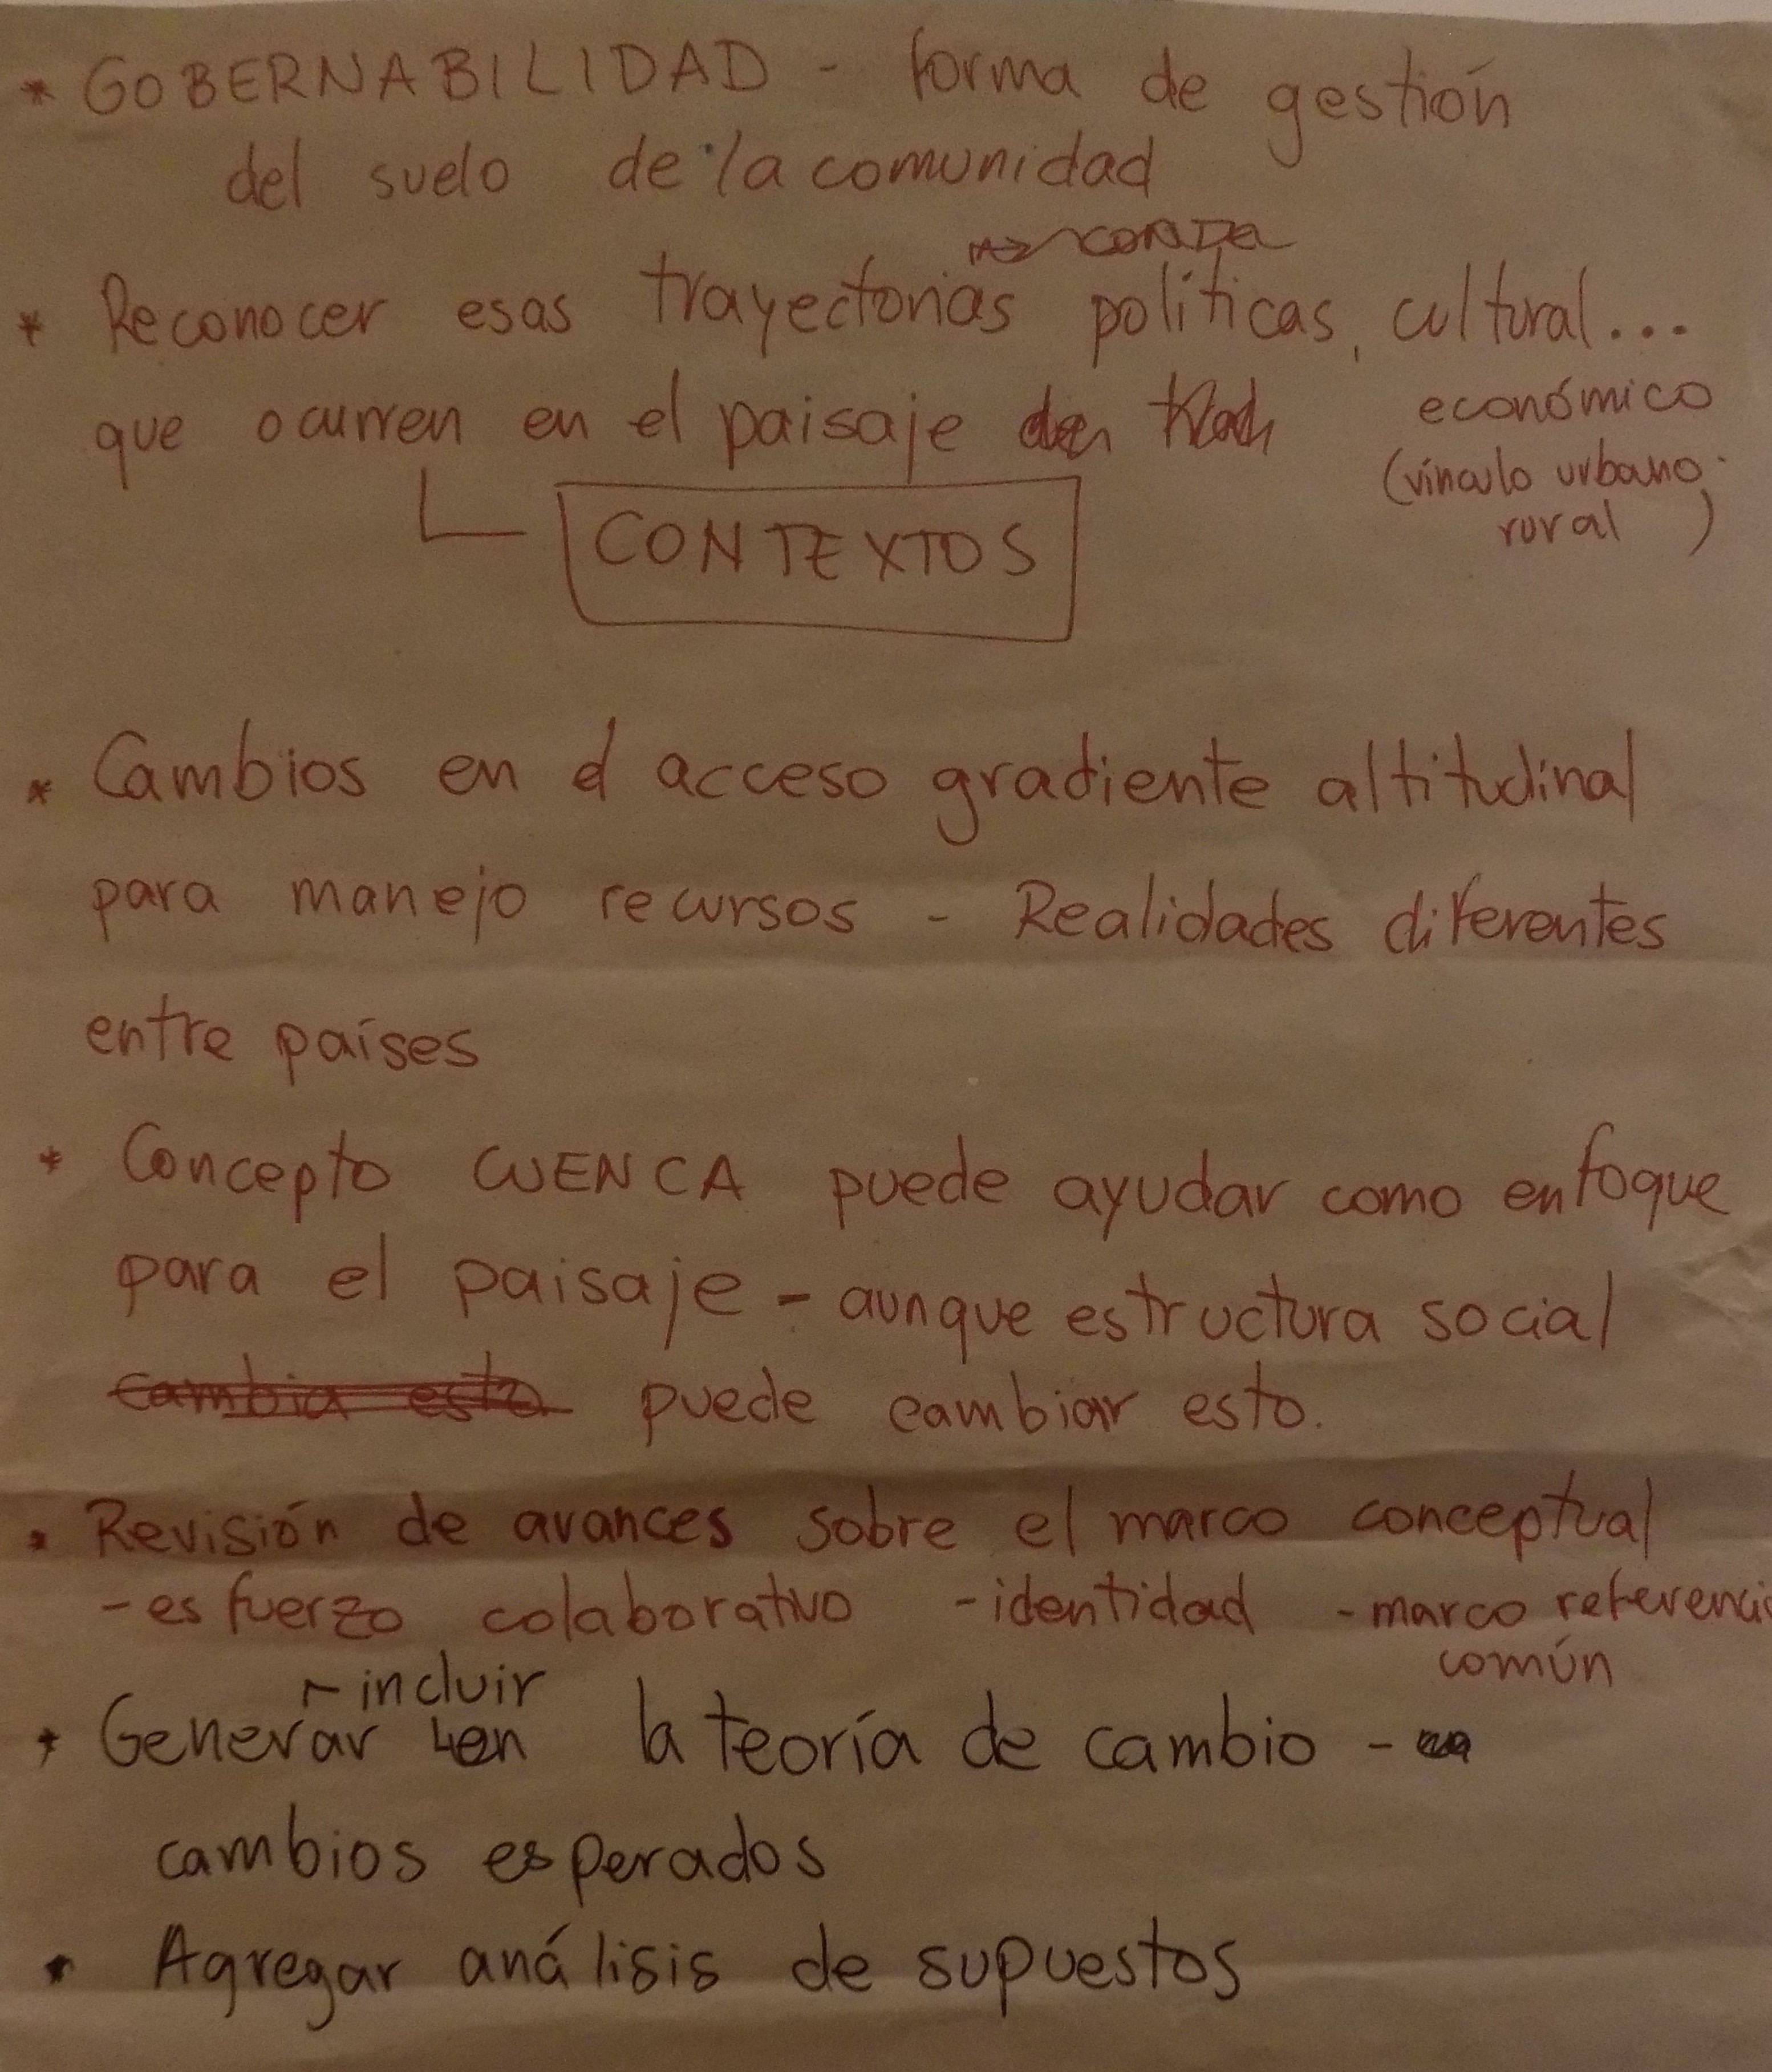 * GOBERNABILIDAD - forma de gestión
del suelo de la comunidad
* Reconocer esas trayectorias políticas, cultural...
que ocurren en el paisaje económico
(vínculo urbano-
rural)
CONTEXTOS
* Cambios en el acceso gradiente altitudinal
para manejo recursos - Realidades diferentes
entre países
* Concepto CUENCA puede ayudar como enfoque
para el paisaje - aunque estructura social
cambia esto puede cambiar esto.
* Revisión de avances sobre el marco conceptual
- esfuerzo colaborativo - identidad - marco referenci
común
- incluir
* Generar en la teoría de cambio -
cambios esperados
* Agregar análisis de supuestos